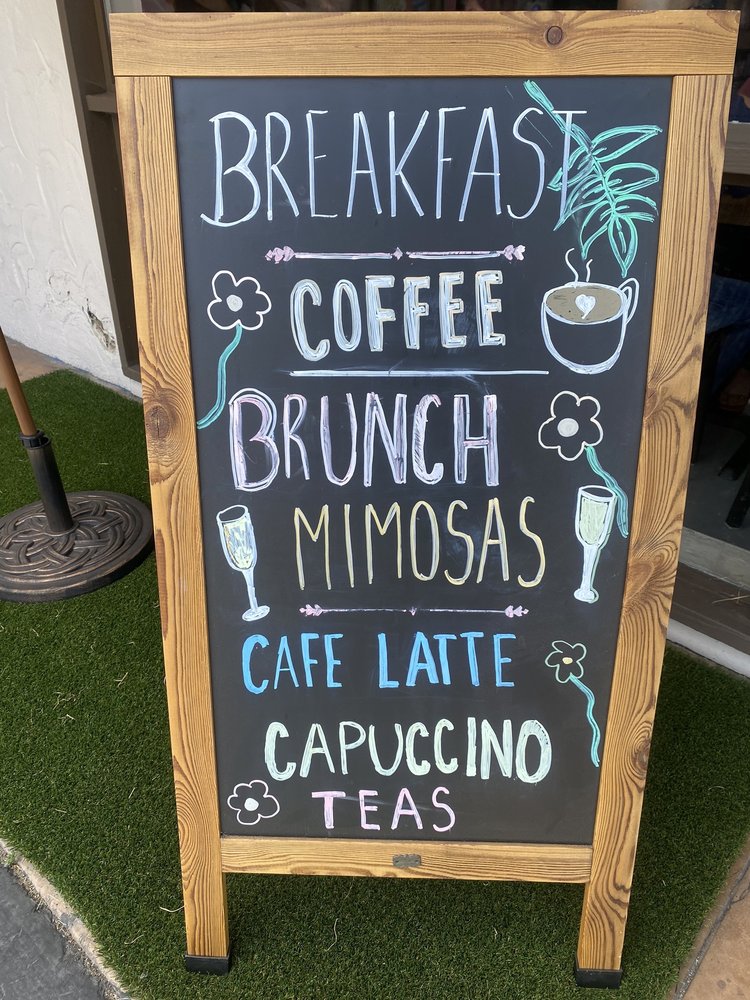 BREAKFAST
COFFEE
BRUNCH
MIMOSAS
CAFE LATTE
CAPUCCINO
TEAS